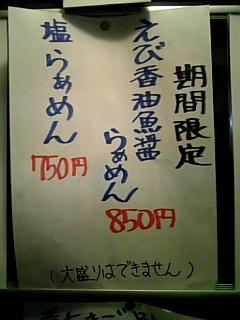 期間限定
えび香油魚醤
らぁめん
850円
塩らぁめん
750円
(大盛りはできません)